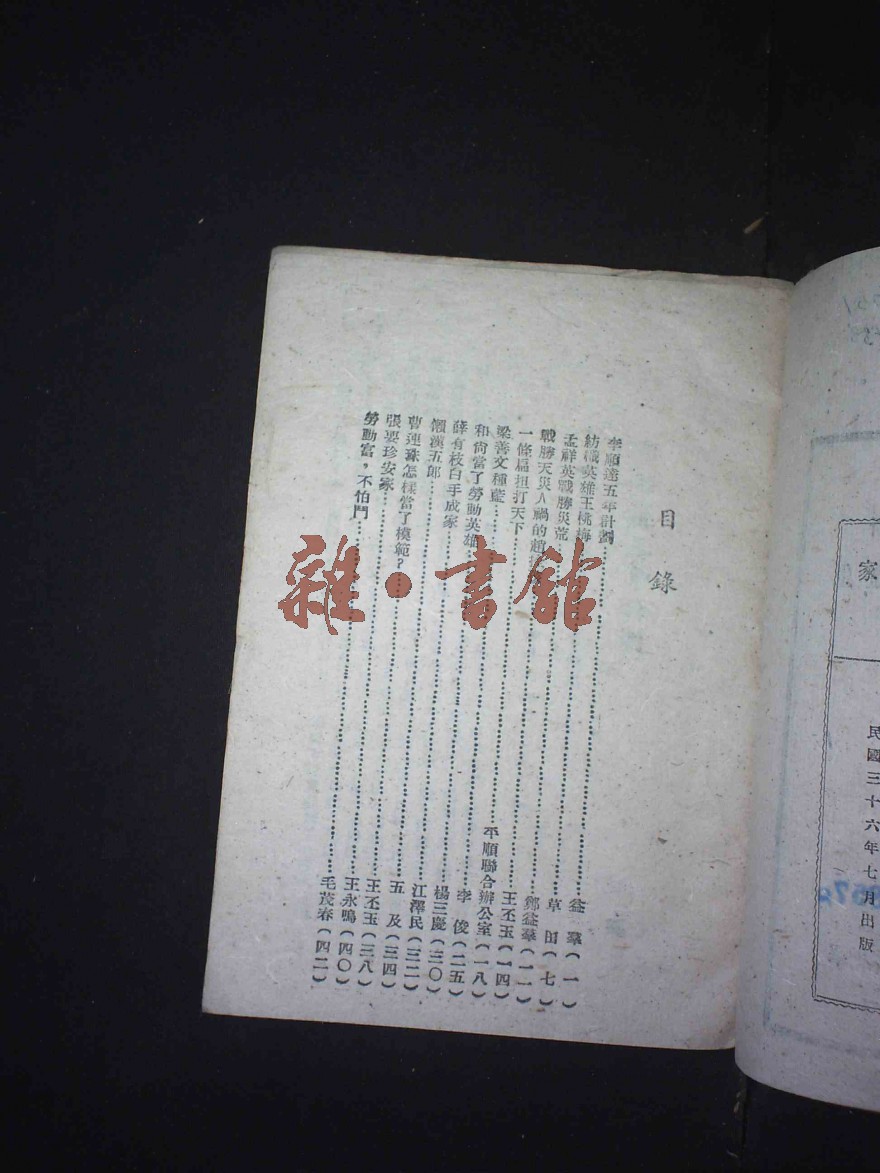 家
民國三十六年七月出版
目錄
李順達五年計劃……益羣(一)
紡織英雄王桃梅……草田(七)
孟祥英戰勝災荒……鄭益羣(一一)
戰勝天災人禍的趙……王丕玉(一四)
一條扁担打天下……平順聯合辦公室(一八)
梁善文種藍……李俊(二五)
和尙當了勞動英雄……楊三慶(三〇)
薛有枝白手成家……江澤民(三二)
懶漢五郎……五及(三四)
曹連珠怎樣當了模範?……王丕玉(三八)
張要珍安家……王永鳴(四〇)
勞動富,不怕鬥……毛茂春(四二)
雜·書館